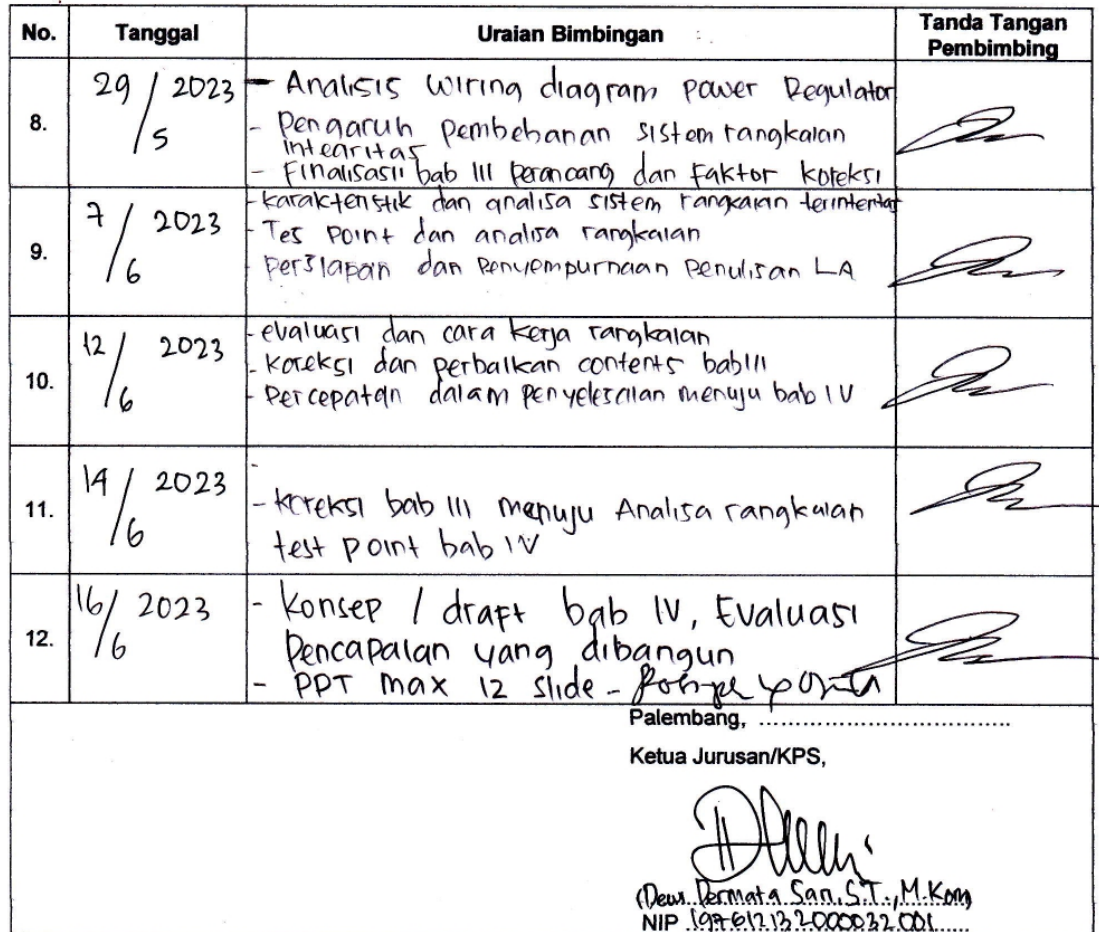 No. Tanggal Uraian Bimbingan Tanda Tangan
Pembimbing
8. 29/5 2023 - Analisis wiring diagram power Regulator
- Pengaruh pembebanan sistem rangkaian
integritas
- Finalisasii bab III perancang dan Faktor koreksi
9. 7/6 2023 - karakteristik dan analisa sistem rangkaian
- Tes Point dan analisa rangkaian
- persiapan dan Penyempurnaan Penulisan LA
10. 12/6 2023 - evaluasi dan cara kerja rangkaian
- koreksi dan perbaikan contents bab III
- Percepatan dalam penyelesaian menuju bab IV
11. 14/6 2023 - koreksi bab III menuju Analisa rangkaian
test point bab IV
12. 16/6 2023 - Konsep / draft bab IV, Evaluasi
Pencapaian yang dibangun
- PPT max 12 slide -
Palembang, ....................................
Ketua Jurusan/KPS,
(Dewi Permata Sari, S.T., M.Kom)
NIP 197612132000032001